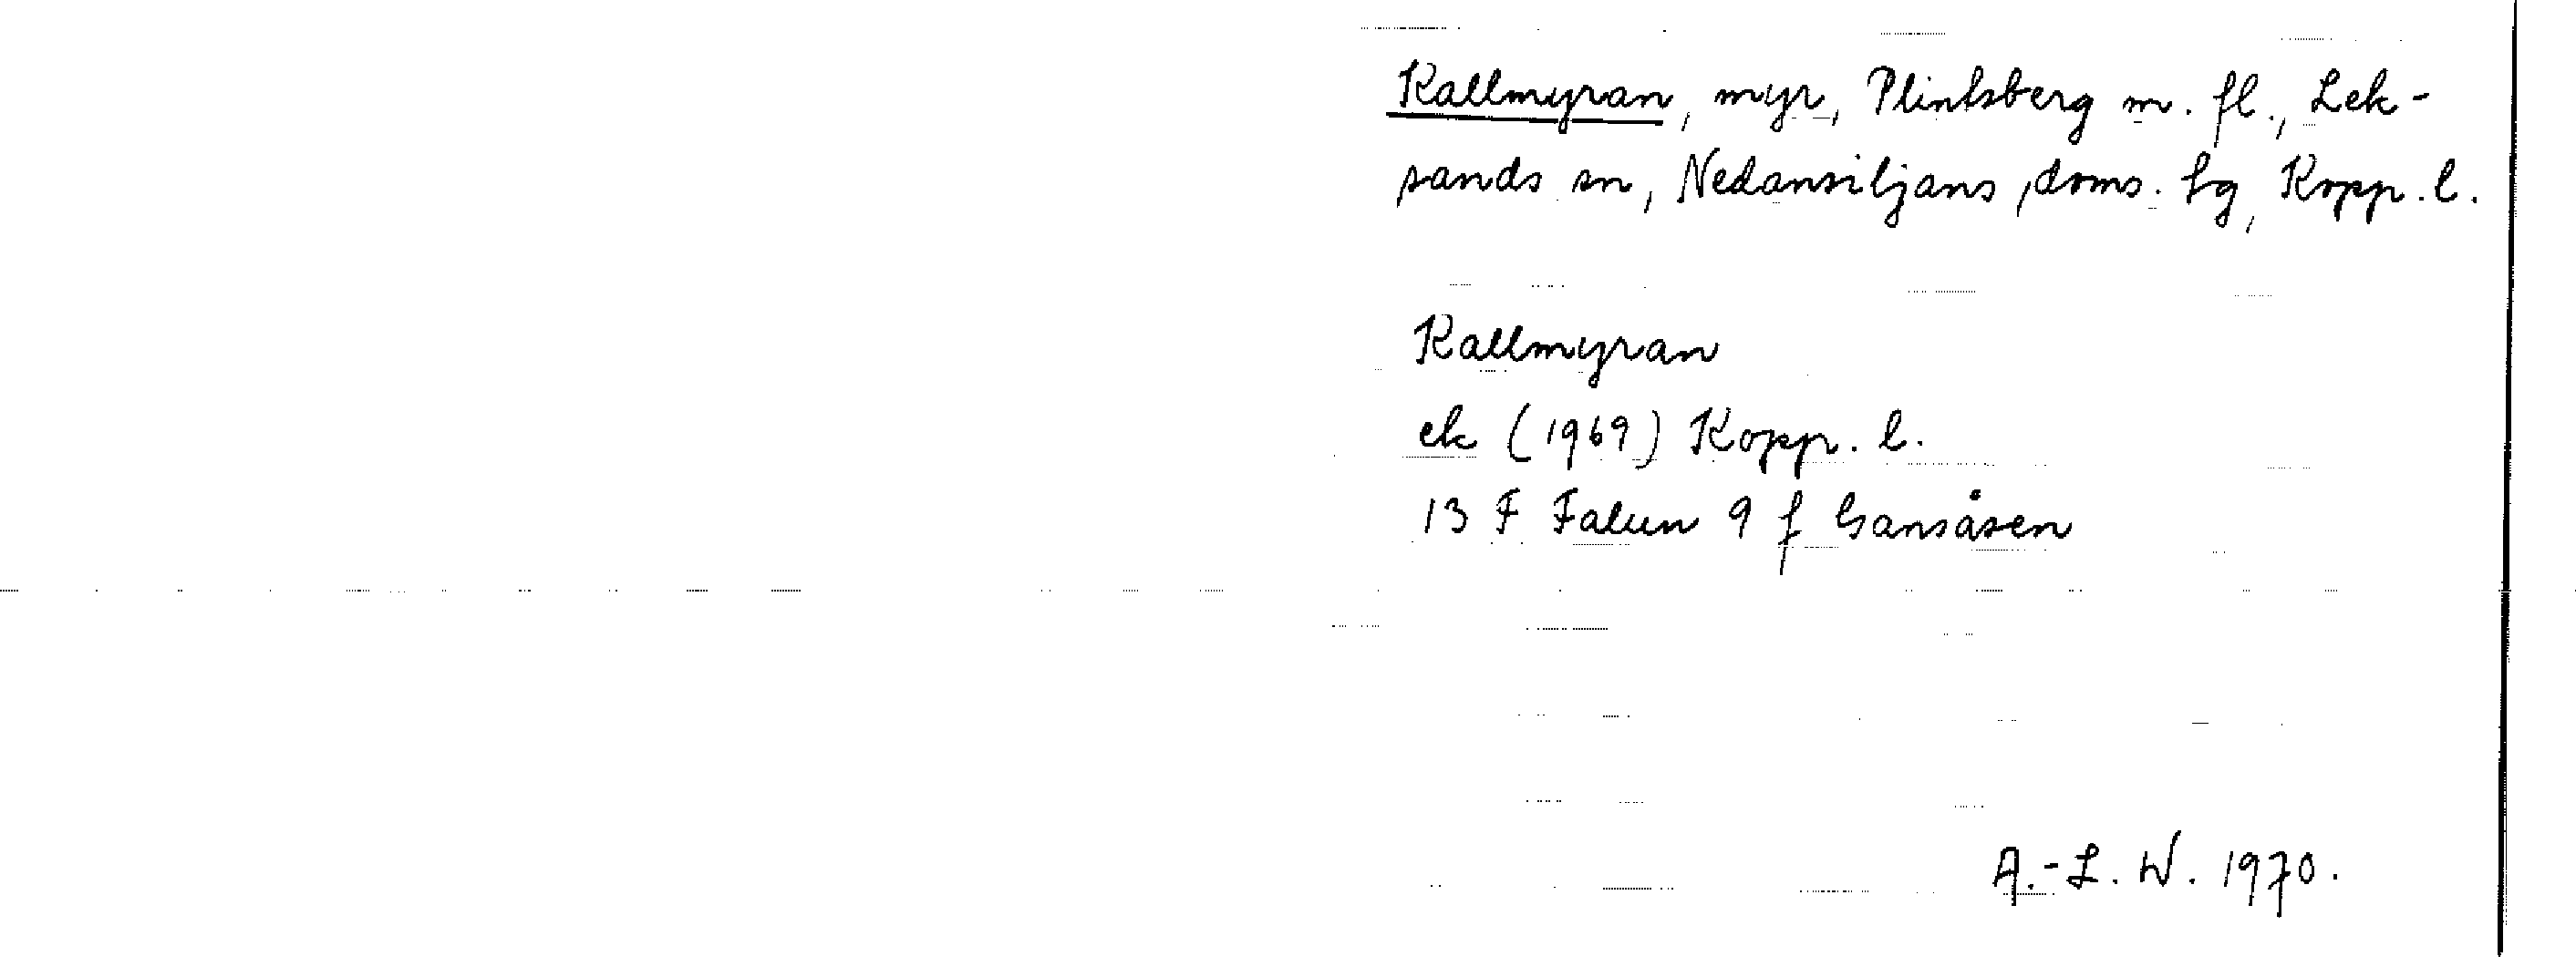 Kallmyran, myr, Plintsberg m. fl., Lek-
sands sn, Nedansiljans doms. hg, Kopp. l.
Kallmyran
ek (1969) Kopp. l.
13 F Falun 9 f Gansåsen
A.-L. W. 1970.